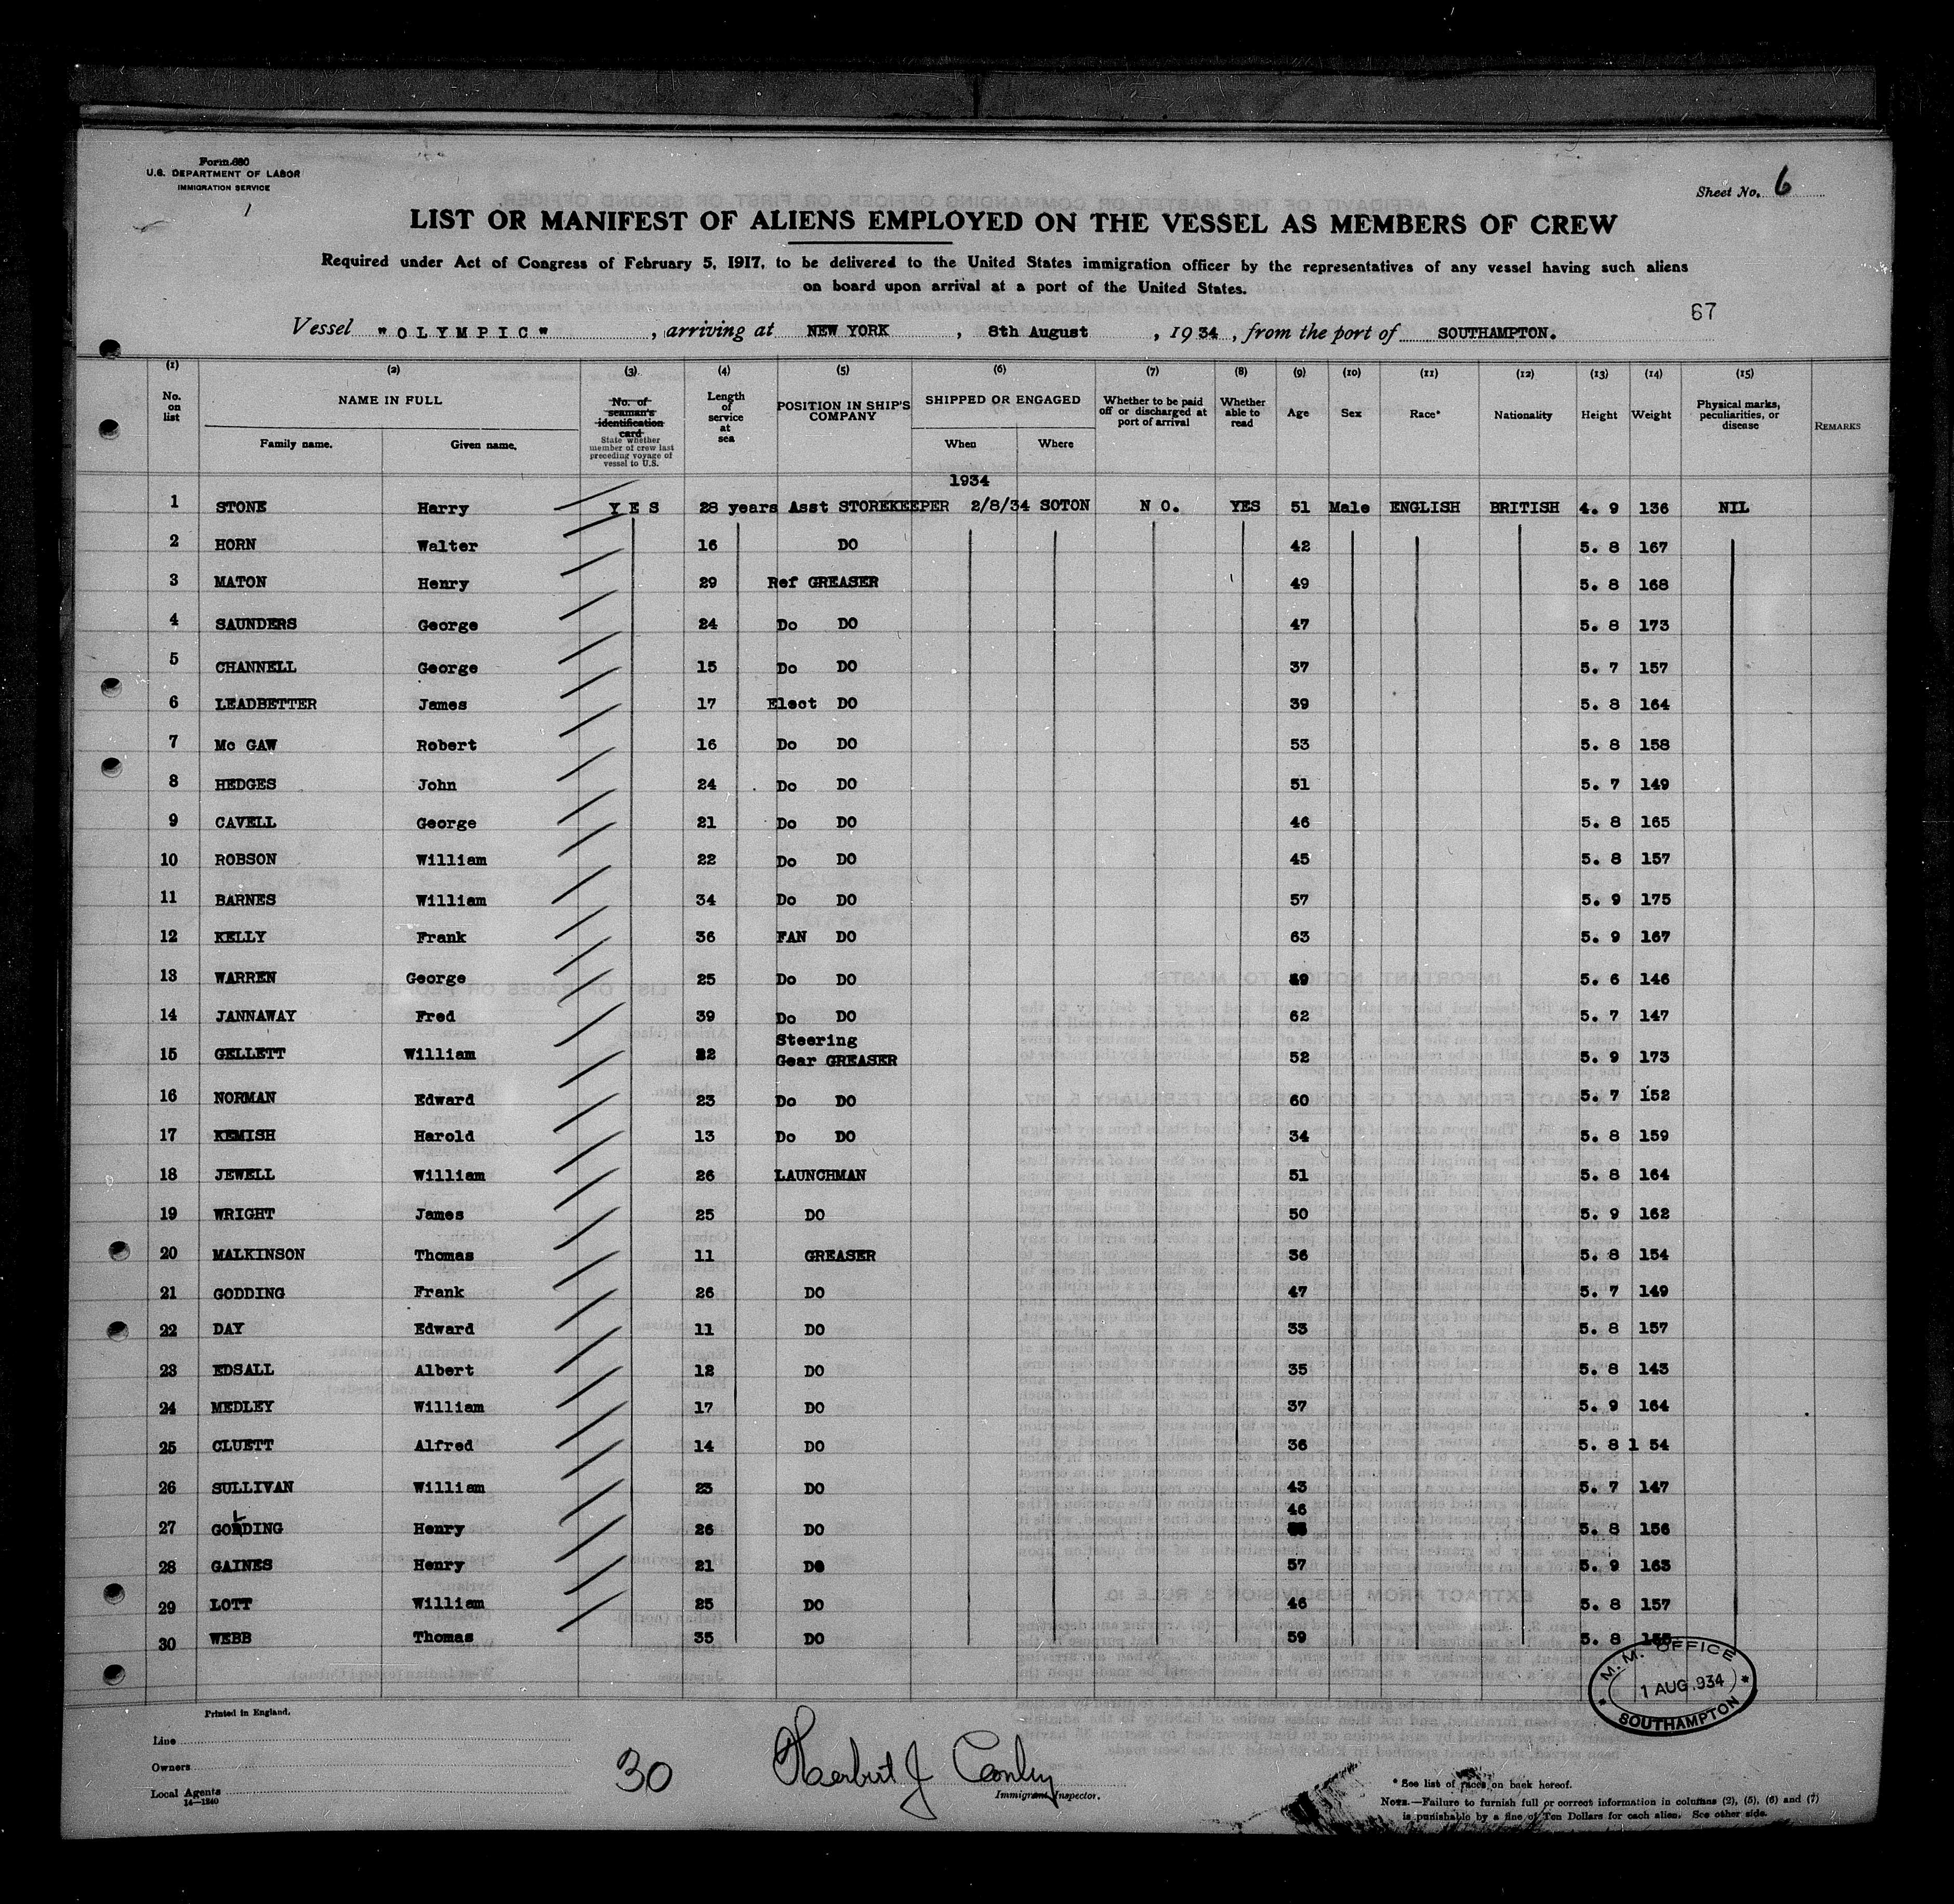 Form 680
U.S. DEPARTMENT OF LABOR
IMMIGRATION SERVICE
Sheet No. 6
LIST OR MANIFEST OF ALIENS EMPLOYED ON THE VESSEL AS MEMBERS OF CREW
Required under Act of Congress of February 5, 1917, to be delivered to the United States immigration officer by the representatives of any vessel having such aliens
on board upon arrival at a port of the United States.
67
Vessel "OLYMPIC", arriving at NEW YORK, 8th August, 1934, from the port of SOUTHAMPTON.
(1) (2) (3) (4) (5) (6) (7) (8) (9) (10) (11) (12) (13) (14) (15)
No. on list
NAME IN FULL
Family name. Given name.
No. of seaman's identification card
State whether member of crew last preceding voyage of vessel to U.S.
Length of service at sea
POSITION IN SHIP'S COMPANY
SHIPPED OR ENGAGED
When Where
Whether to be paid off or discharged at port of arrival
Whether able to read
Age
Sex
Race*
Nationality
Height
Weight
Physical marks, peculiarities, or disease
REMARKS
1934
1 STONE Harry YES 28 years Asst STOREKEEPER 2/8/34 SOTON NO. YES 51 Male ENGLISH BRITISH 4. 9 136 NIL
2 HORN Walter 16 DO 42 5. 8 167
3 MATON Henry 29 Ref GREASER 49 5. 8 168
4 SAUNDERS George 24 Do DO 47 5. 8 173
5 CHANNELL George 15 Do DO 37 5. 7 157
6 LEADBETTER James 17 Elect DO 39 5. 8 164
7 Mc GAW Robert 16 Do DO 53 5. 8 158
8 HEDGES John 24 Do DO 51 5. 7 149
9 CAVELL George 21 Do DO 46 5. 8 165
10 ROBSON William 22 Do DO 45 5. 8 157
11 BARNES William 34 Do DO 57 5. 9 175
12 KELLY Frank 36 FAN DO 63 5. 9 167
13 WARREN George 25 Do DO 49 5. 6 146
14 JANNAWAY Fred 39 Do DO 62 5. 7 147
15 GELLETT William 22 Steering Gear GREASER 52 5. 9 173
16 NORMAN Edward 23 Do DO 60 5. 7 152
17 KEMISH Harold 13 Do DO 34 5. 8 159
18 JEWELL William 26 LAUNCHMAN 51 5. 8 164
19 WRIGHT James 25 DO 50 5. 9 162
20 MALKINSON Thomas 11 GREASER 36 5. 8 154
21 GODDING Frank 26 DO 47 5. 7 149
22 DAY Edward 11 DO 33 5. 8 157
23 EDSALL Albert 12 DO 35 5. 8 143
24 MEDLEY William 17 DO 37 5. 9 164
25 CLUETT Alfred 14 DO 36 5. 8 1 54
26 SULLIVAN William 23 DO 43 5. 7 147
27 GOLDING Henry 26 DO 46 5. 8 156
28 GAINES Henry 21 DO 57 5. 9 163
29 LOTT William 25 DO 46 5. 8 157
30 WEBB Thomas 35 DO 59 5. 8
M. M. OFFICE
1 AUG .934
SOUTHAMPTON
Printed in England.
Line
Owners
Local Agents
14—1240
30
Herbert J Conley
Immigrant Inspector.
* See list of races on back hereof.
NOTE.—Failure to furnish full or correct information in columns (2), (5), (6) and (7)
is punishable by a fine of Ten Dollars for each alien. See other side.